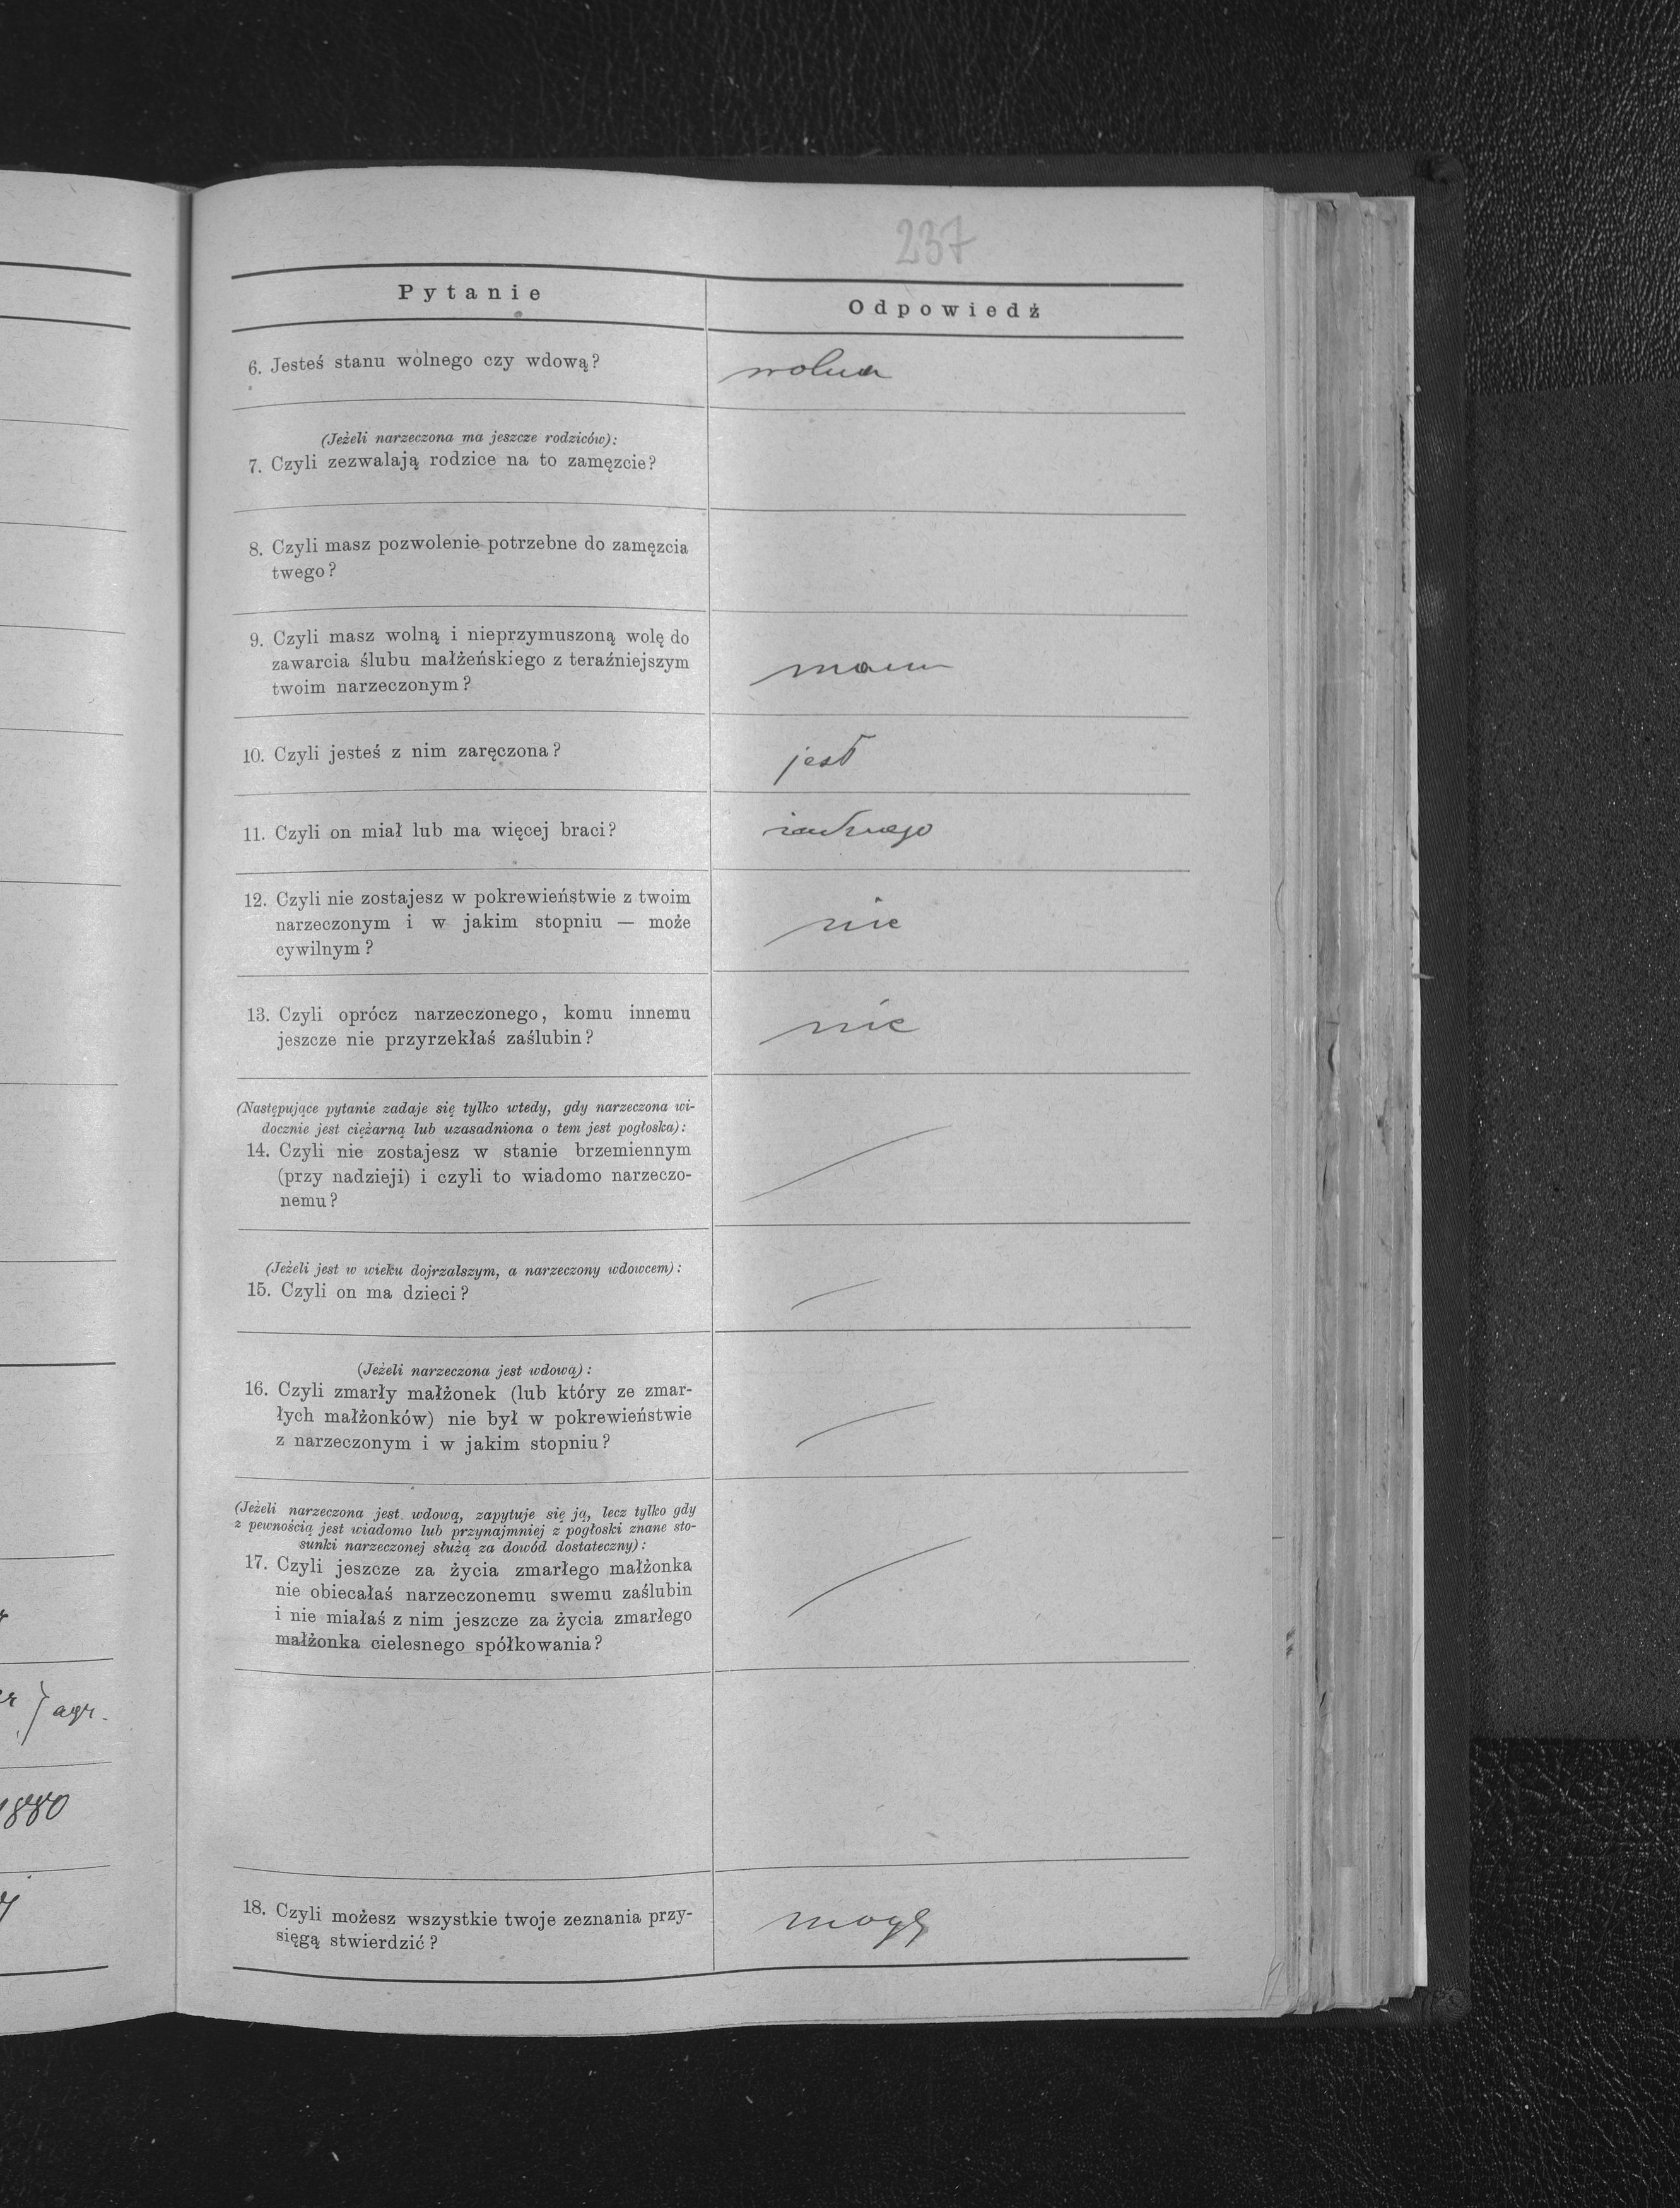 237
Pytanie
Odpowiedź
6. Jesteś stanu wolnego czy wdową?
wolna
(Jeżeli narzeczona ma jeszcze rodziców):
7. Czyli zezwalają rodzice na to zamęzcie?
8. Czyli masz pozwolenie potrzebne do zamęzcia
twego?
9. Czyli masz wolną i nieprzymuszoną wolę do
zawarcia ślubu małżeńskiego z teraźniejszym
twoim narzeczonym?
mam
10. Czyli jesteś z nim zaręczona?
jest
11. Czyli on miał lub ma więcej braci?
żadnego
12. Czyli nie zostajesz w pokrewieństwie z twoim
narzeczonym i w jakim stopniu — może
cywilnym?
nie
13. Czyli oprócz narzeczonego, komu innemu
jeszcze nie przyrzekłaś zaślubin?
nie
(Następujące pytanie zadaje się tylko wtedy, gdy narzeczona wi-
docznie jest ciężarną lub uzasadniona o tem jest pogłoska):
14. Czyli nie zostajesz w stanie brzemiennym
(przy nadzieji) i czyli to wiadomo narzeczo-
nemu?
(Jeżeli jest w wieku dojrzalszym, a narzeczony wdowcem):
15. Czyli on ma dzieci?
(Jeżeli narzeczona jest wdową):
16. Czyli zmarły małżonek (lub który ze zmar-
łych małżonków) nie był w pokrewieństwie
z narzeczonym i w jakim stopniu?
(Jeżeli narzeczona jest wdową, zapytuje się ją, lecz tylko gdy
z pewnością jest wiadomo lub przynajmniej z pogłoski znane sto-
sunki narzeczonej służą za dowód dostateczny):
17. Czyli jeszcze za życia zmarłego małżonka
nie obiecałaś narzeczonemu swemu zaślubin
i nie miałaś z nim jeszcze za życia zmarłego
małżonka cielesnego spółkowania?
agr.
1880
18. Czyli możesz wszystkie twoje zeznania przy-
sięgą stwierdzić?
mogę